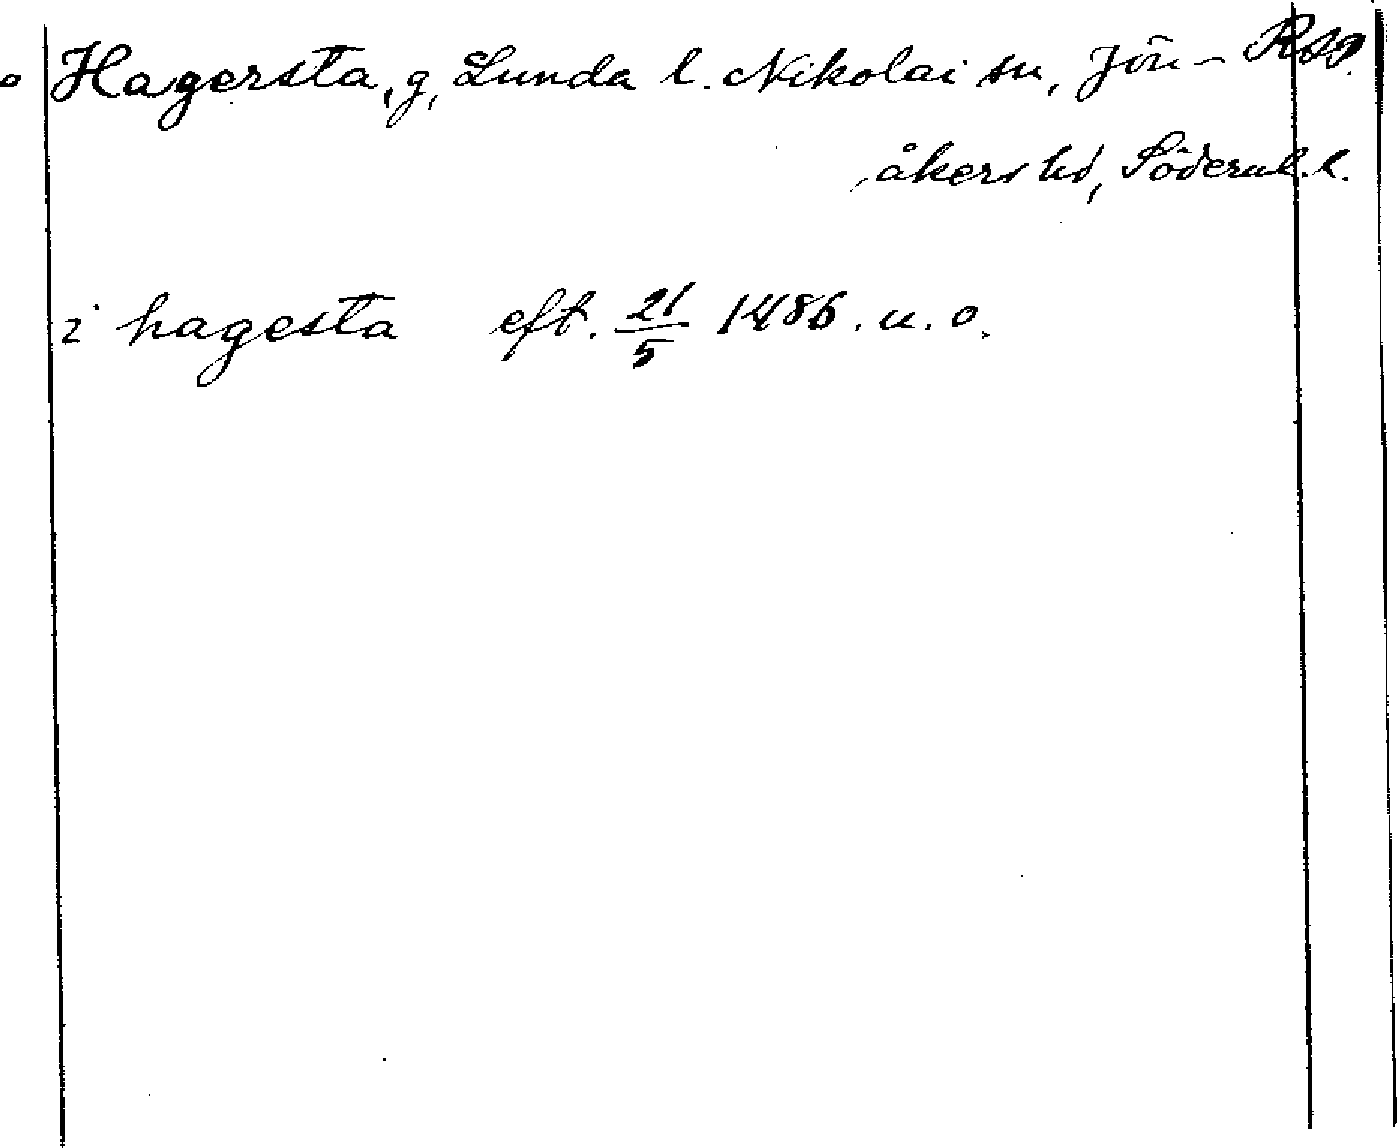 Hagersta, g, Lunda l. Nikolai sn, Jön- RAP.
åkers hd, Söderml. l.
i hagesta eft. 21/5 1486. u. o.